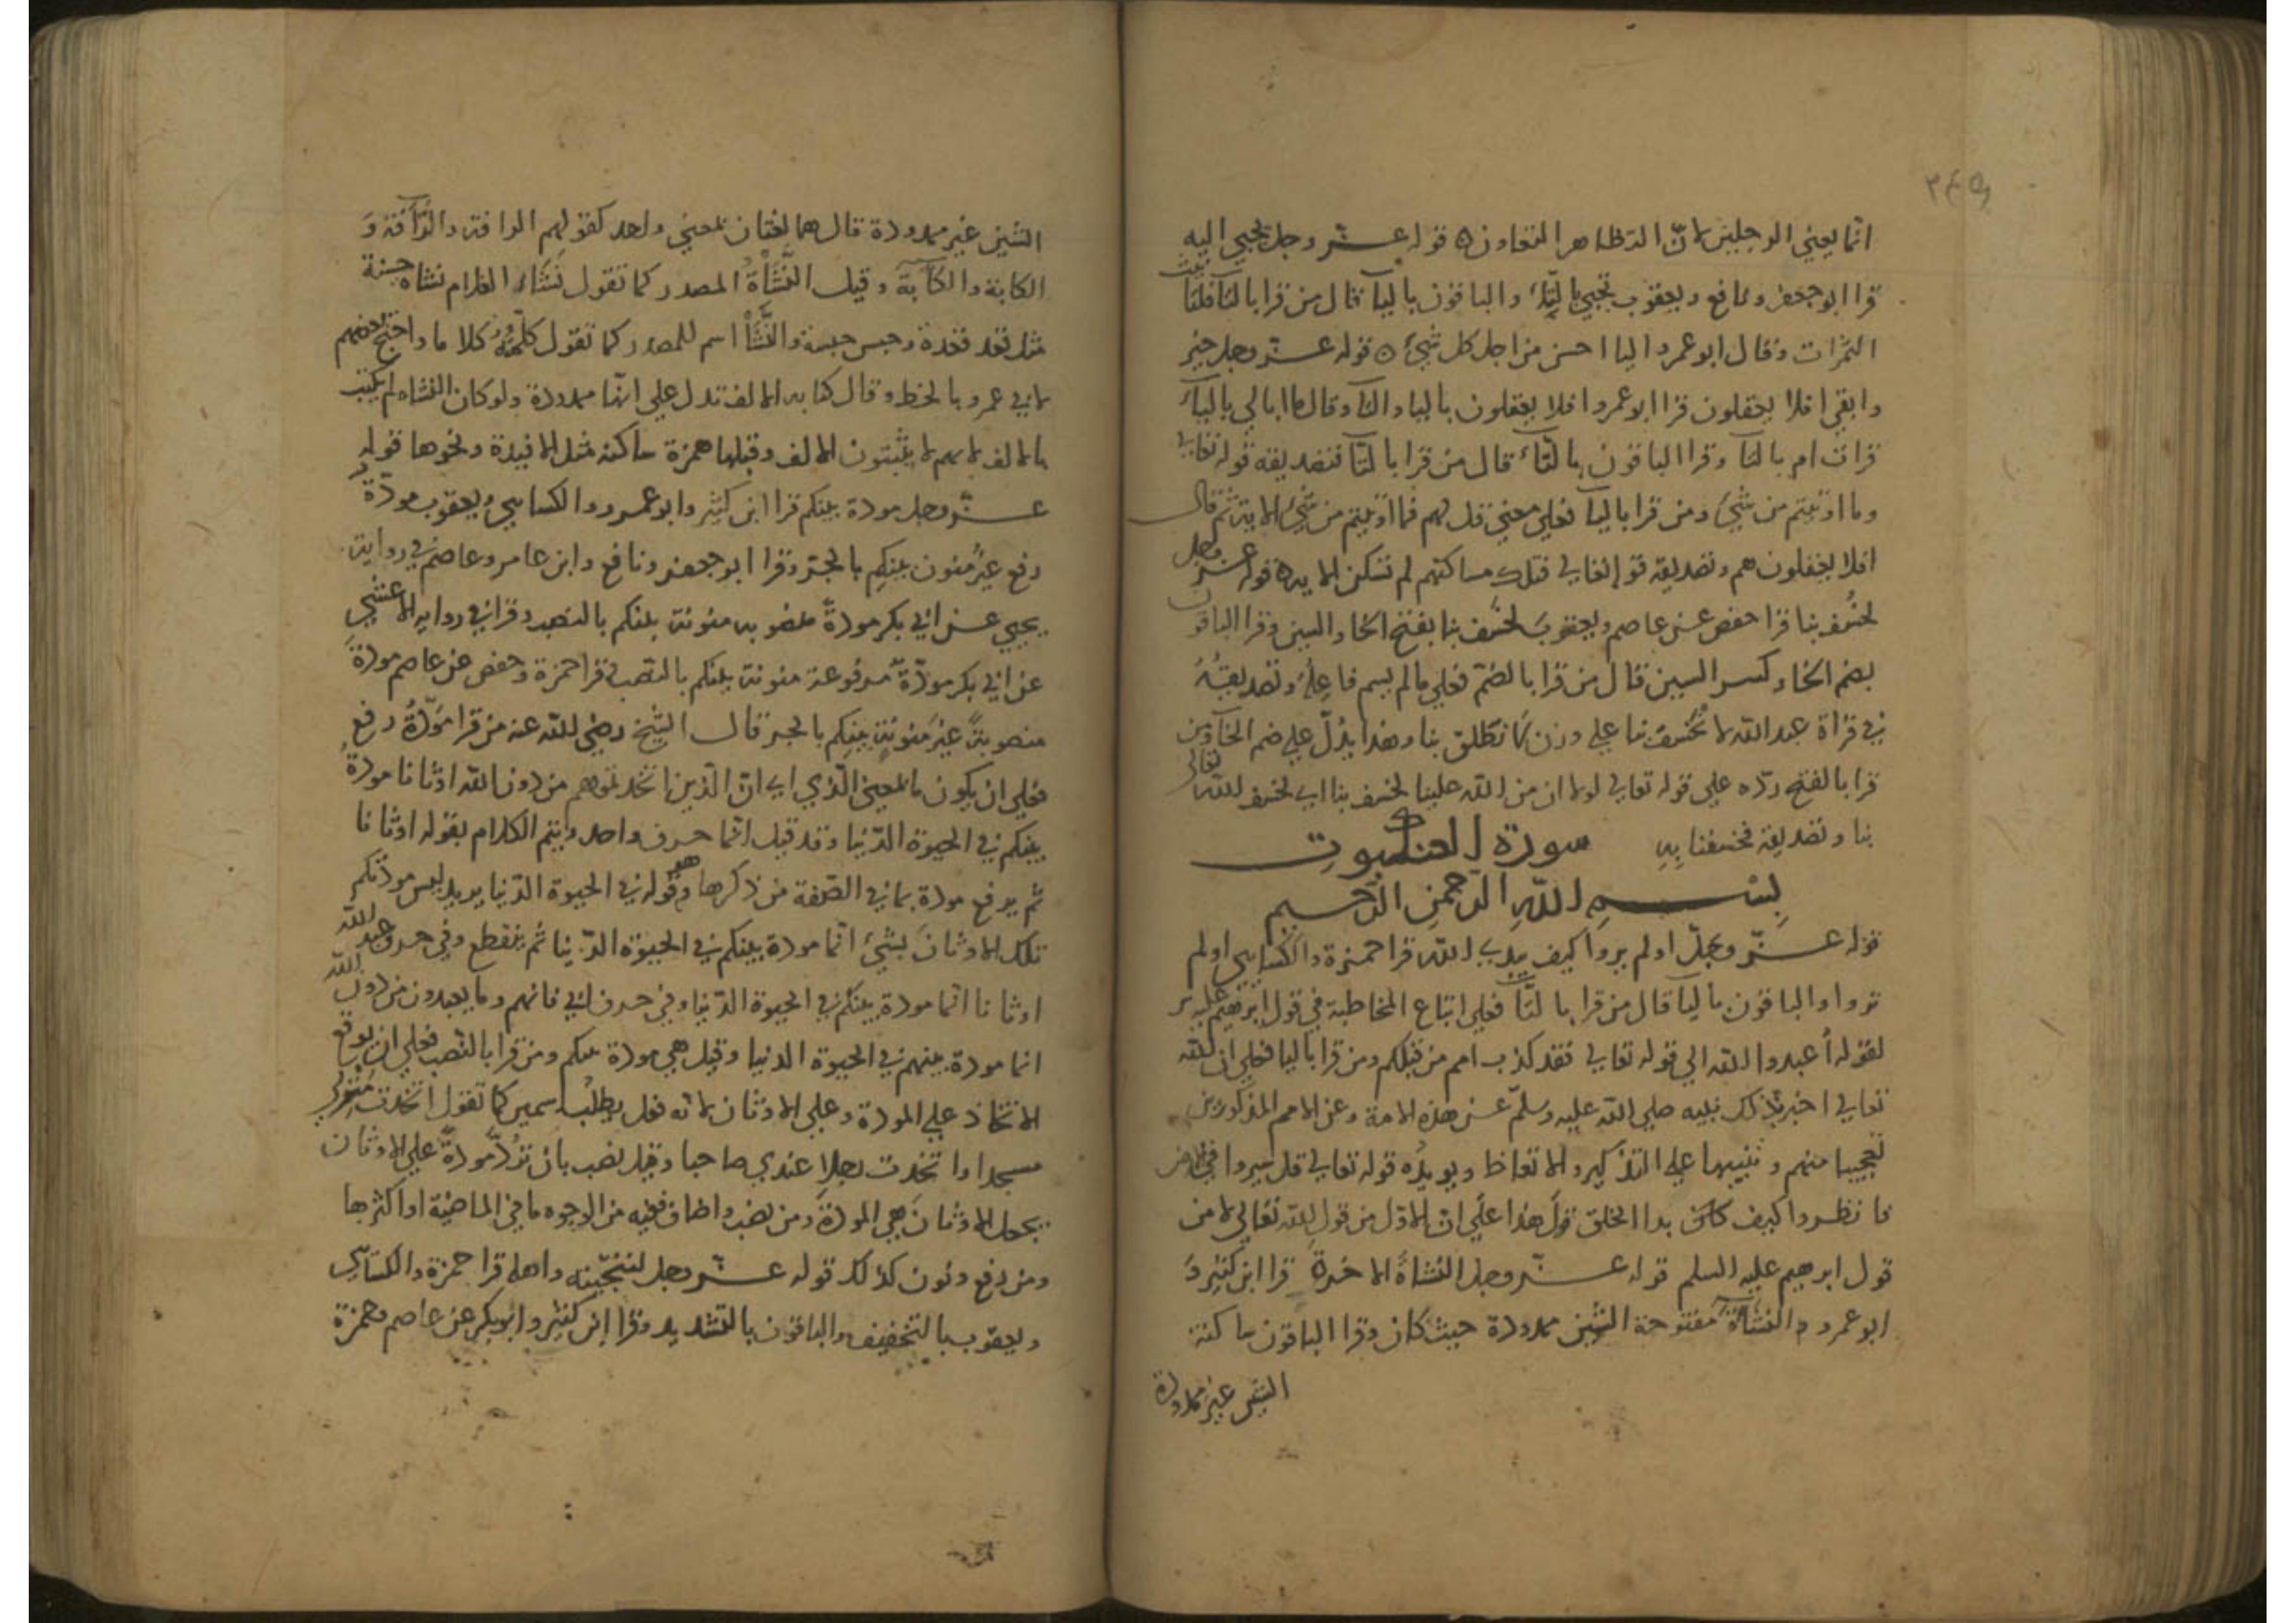 انما يعني الوجلين لان التظاهر التعاون ه قوله عز وجل يجبي اليه
قرا ابو جعفر ونافع ويعقوب تجبي بالتاء والباقون باليا قال من قرا بالتا فلتانيث
الثمرات وقال ابو عمرو اليا احسن من اجل كل شيء ه قوله عز وجل خير
وابقي افلا يعقلون قرا ابو عمرو افلا يعقلون باليا والتا وقال ما ابالي بالياء
قرات ام بالتا وقرا الباقون بالتاء قال من قرا بالتا فتصديقه قوله تعالي
وما اوتيتم من شيء ومن قرا باليا فعلي معني قل لهم فما اوتيتم من شيء الاية ثم قال
افلا يعقلون هم وتصديقه قوله تعالي فتلك مساكنهم لم تسكن الايه ه قوله عز وجل
لخسف بنا قرا حفص عن عاصم ويعقوب لخسف بنا بفتح الخا والسين وقرا الباقون
بضم الخاء وكسر السين قال من قرا بالضم فعلي ما لم يسم فاعله وتصديقه
في قراة عبد الله لا نخسف بنا علي وزن لا نطلق بنا وهذا يدل علي ضم الخا ومن
قرا بالفتح رده علي قوله تعالي لولا ان من الله علينا لخسف بنا اي لخسف الله تعالي
بنا وتصديقه فخسفنا به سورة العنكبوت
بسم الله الرحمن الرحيم
قوله عز وجل اولم يروا كيف يبدي الله قرا حمزة والكسايي اولم
تروا والباقون باليا قال من قرا بالتا فعلي اتباع المخاطبة في قول ابرهيم عليه
لقوله اعبدوا الله الي قوله تعالي فقد كذب امم من قبلكم ومن قرا باليا فعلي ان الله
تعالي اخبر بذلك نبيه صلي الله عليه وسلم عن هذه الامة وعن الامم المذكورين
تعجيبا منهم وتنبيها علي التذكير والاتعاظ ويويده قوله تعالي قل سيروا في الارض
فانظروا كيف بدا الخلق هذا علي ان الاول من قول الله تعالي لا من
قول ابرهيم عليه السلم قوله عز وجل النشاة الاخرة قرا ابن كثير و
ابو عمرو النشاة مفتوحة الشين ممدودة حيث كان وقرا الباقون ساكنة
الشين غير ممدودة
الشين غير ممدودة قال هما لغتان بمعني واحد كقولهم الرافة والرآفة و
الكابة والكآبة وقيل النشاة المصدر كما تقول نشاء الغلام نشاة حسنة
مثل قعد قعدة وجبس والنشا اسم للمصدر كما تقول كلمته كلاما واحتج بعضهم
لابي عمرو بالخط وقال كتابه الالف تدل علي انها ممدودة ولو كان النشاه لم يكتب
بالالف لانهم لا يثبتون الالف وقبلها همزة ساكنة مثل الافيدة ونحوها قوله
عز وجل مودة بينكم قرا ابن كثير وابو عمرو والكسايي ويعقوب مودة
رفع غير منون بينكم بالجر وقرا ابو جعفر ونافع وابن عامر وعاصم في رواية
يحيي عن ابي بكر مودة منصوبه منونة بينكم بالنصب وقرا في رواية الاعشي
عن ابي بكر مودة مرفوعة منونة بينكم بالنصب قرا حمزة وحفص عن عاصم مودة
منصوبة غير منونة بينكم بالجر قال الشيخ رضي الله عنه من قرا مودة رفع
فعلي ان يكون بالمعني الذي اي ان الذين اتخذتموهم من دون الله اوثانا مودة
بينكم في الحيوة الدنيا وقد قيل انما حرف واحد ويتم الكلام بقوله اوثانا
ثم يرفع مودة بما في الصفة من ذكرها وهو قوله في الحيوة الدنيا يريد ليس مودتكم
تلك الاوثان بشيء انما مودة بينكم في الحيوة الدنيا ثم ينقطع وفي حرف عبد الله
اوثانا انما مودة بينكم في الحيوة الدنيا وفي حرف ابي فانهم وما يعبدون من دون الله
انما مودة بينهم في الحيوة الدنيا وقيل هي مودة بينكم ومن قرا بالنصب فعلي ان يوقع
الاتخاذ علي المودة وعلي الاوثان لانه فعل يطلب اسمين كما تقول اتخذت منزلي
مسجدا واتخذت رجلا عندي صاحبا وقيل نصب بان ترد مودة علي الاوثان
بجعل الاوثان هي المودة ومن نصب واضاف ففيه من الوجوه ما في الماضية او اكثرها
ومن رفع ونون كذلك قوله عز وجل لننجينه واهله قرا حمزة والكسايي
ويعقوب بالتخفيف والباقون بالتشديد وقرا ابن كثير وابو بكر عن عاصم وحمزة